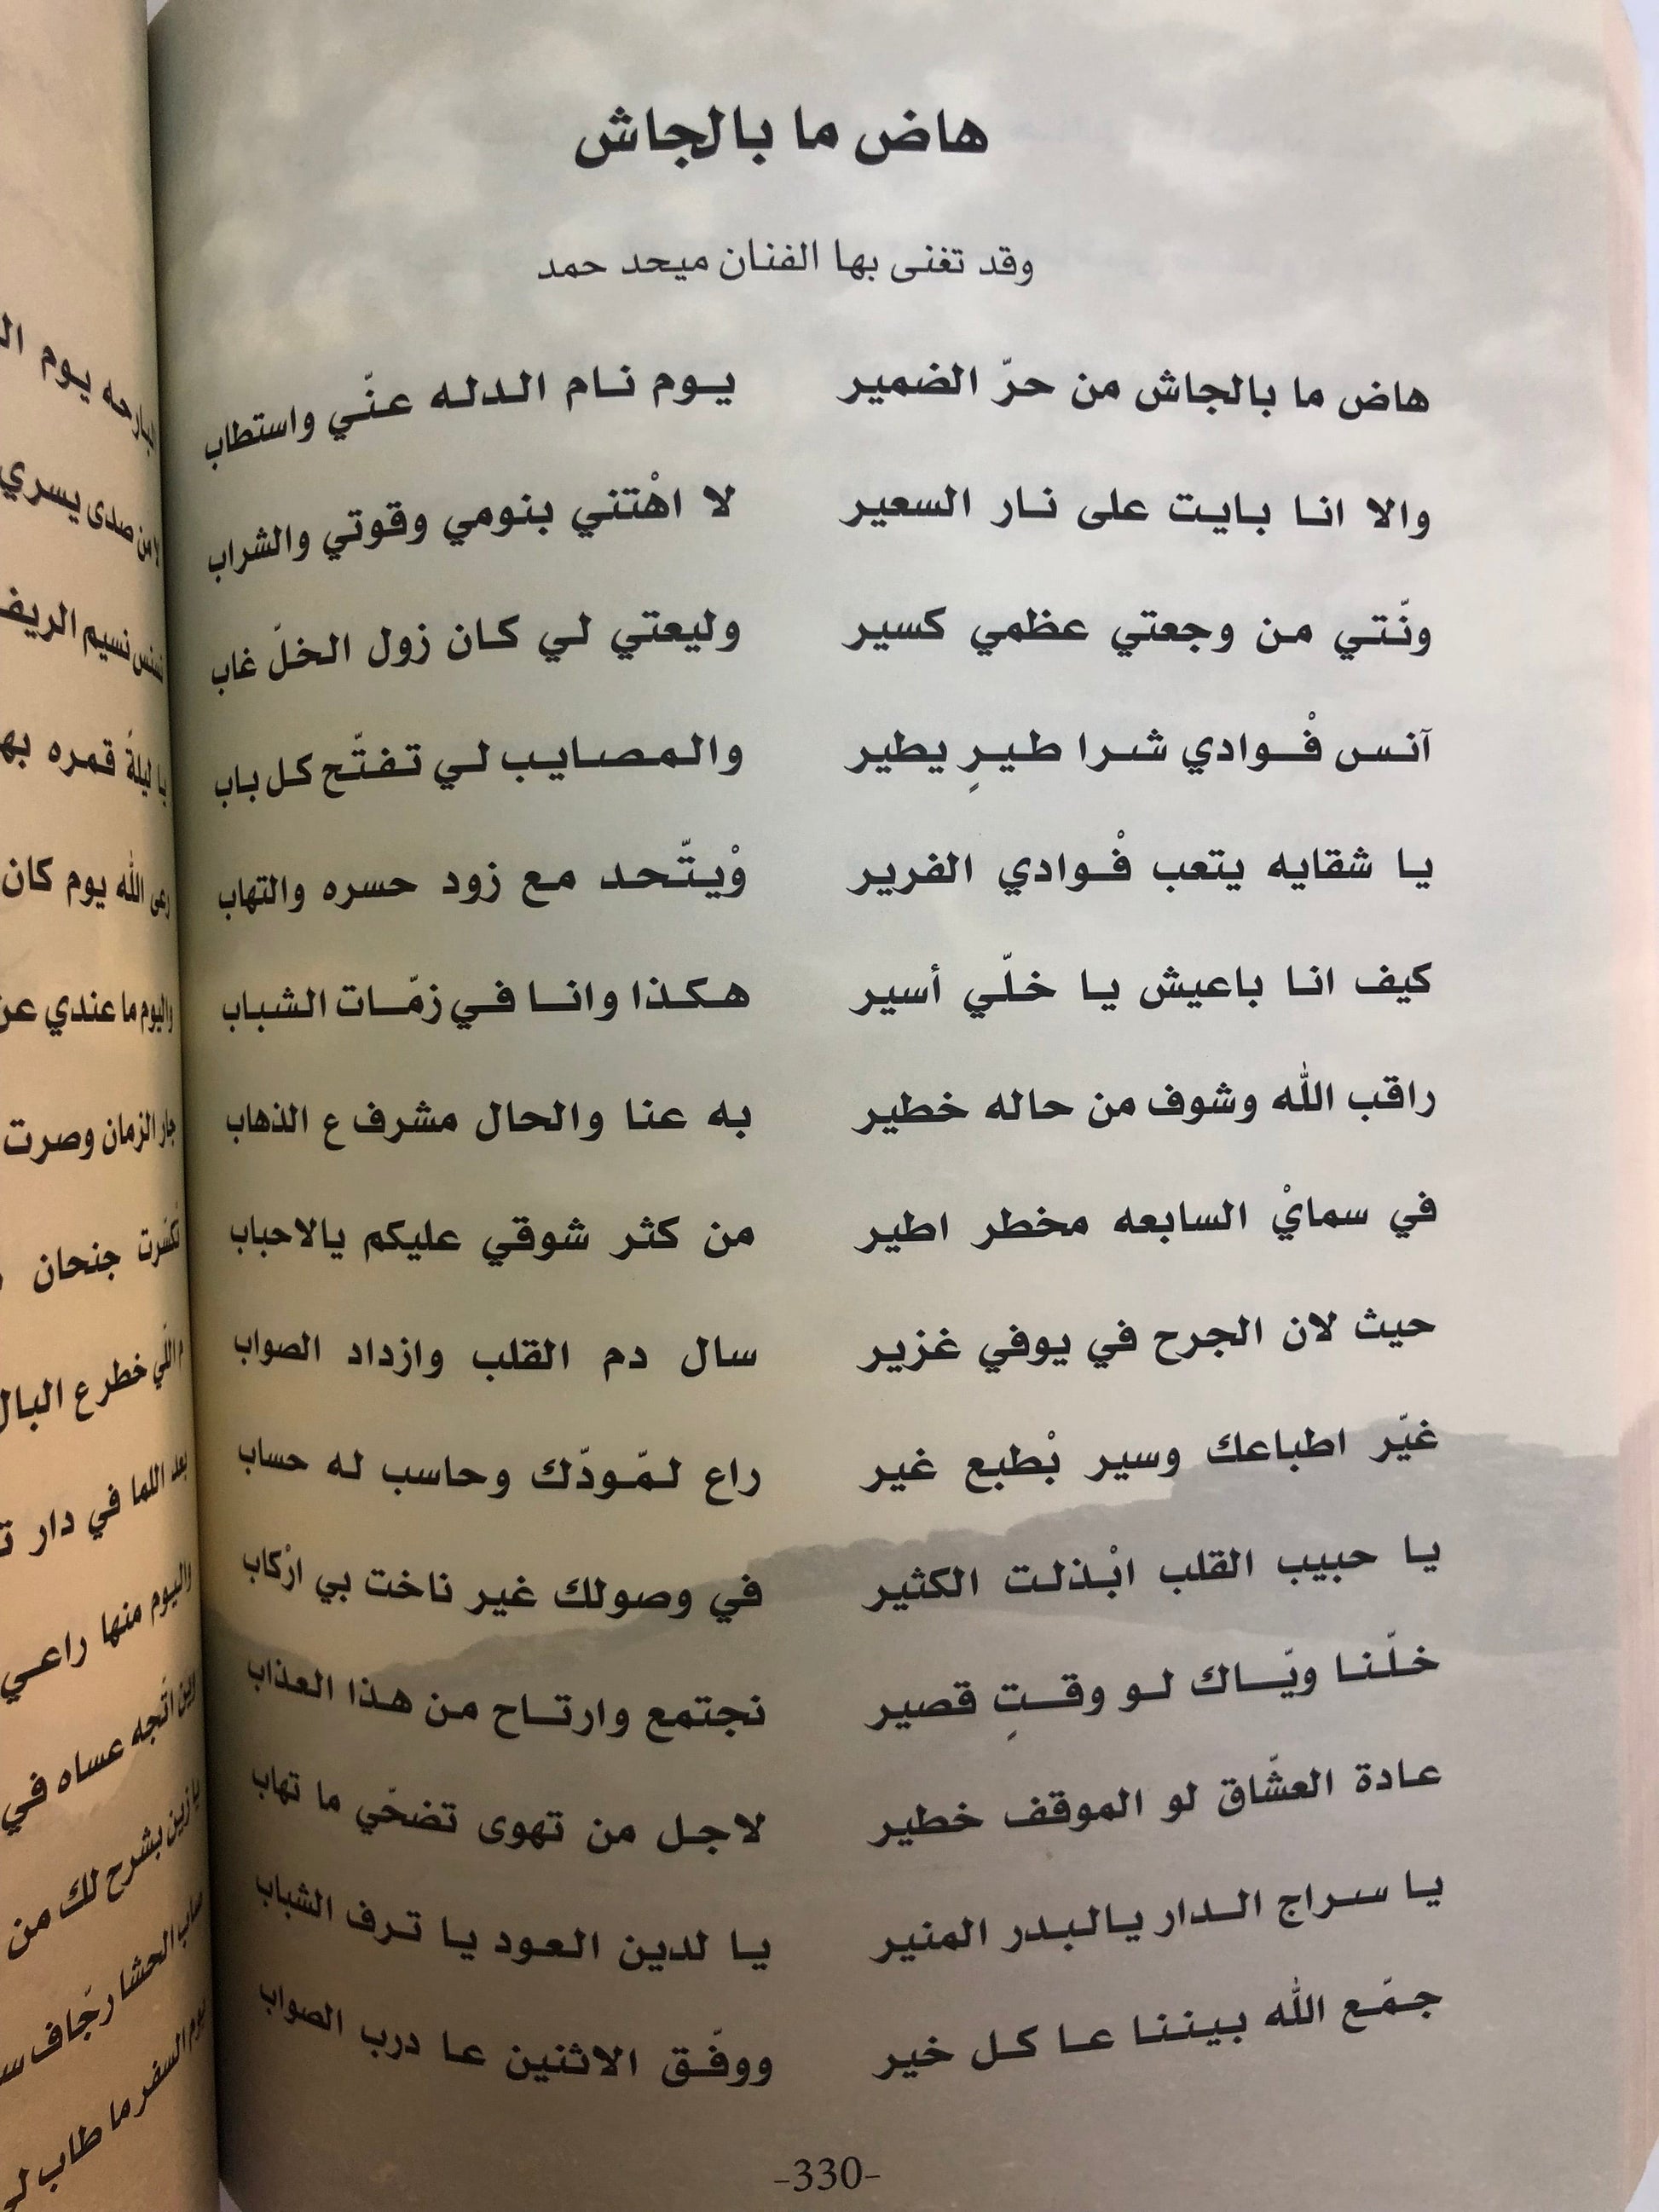 هاض ما بالجاش
وقد تغنى بها الفنان ميحد حمد
هاض ما بالجاش من حرّ الضمير يـوم نـام الـدلـه عـنّـي واستطاب
والا انـا بـايـت على نـار السعير لا اهْتني بنومي وقوتي والشراب
ونّتي من وجعتي عظمي كسير وليعتي لي كان زول الخلّ غاب
آنس فْوادي شرا طيرٍ يطير والمصايب لي تفتّح كل باب
يا شقايه يتعب فْوادي الفرير وْيتّحد مع زود حسره والتهاب
كيف انا باعيش يا خلّي أسير هكذا وانا في زمّات الشباب
راقب الله وشوف من حاله خطير به عنا والحال مشرف ع الذهاب
في سمايْ السابعه مخطر اطير من كثر شوقي عليكم يالاحباب
حيث لان الجرح في يوفي غزير سال دم القلب وازداد الصواب
غيّر اطباعك وسير بْطبع غير راع لمّودّك وحاسب له حساب
يا حبيب القلب ابْذلت الكثير في وصولك غير ناخت بي ارْكاب
خلّنا ويّاك لو وقتٍ قصير نجتمع وارتاح من هذا العذاب
عادة العشّاق لو الموقف خطير لاجل من تهوى تضحّي ما تهاب
يا سراج الدار يالبدر المنير يا لدين العود يا ترف الشباب
جمّع الله بيننا عا كل خير ووفّق الاثنين عا درب الصواب
-330-
البارحه يوم
من صدى يسري
نسيم الريف
يا ليلةٍ قمره
رعى الله يوم كان
واليوم ما عندي
جار الزمان وصرت
تكسّرت جنحان
خطر ع البال
بعد اللما في دار
واليوم منها راعي
وين اتّجه عساه في
يا زين بشرح لك من
الحشا رجّاف
يوم السفر ما طاب